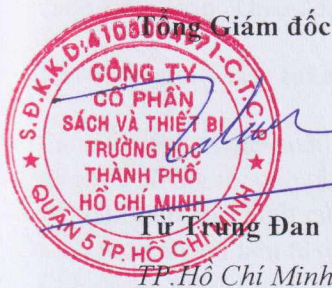 Tổng Giám đốc
CÔNG TY
CỔ PHẦN
SÁCH VÀ THIẾT BỊ
TRƯỜNG HỌC
THÀNH PHỐ
HỒ CHÍ MINH
QUẬN 5 TP. HỒ CHÍ MINH
Từ Trung Đan
TP.Hồ Chí Minh